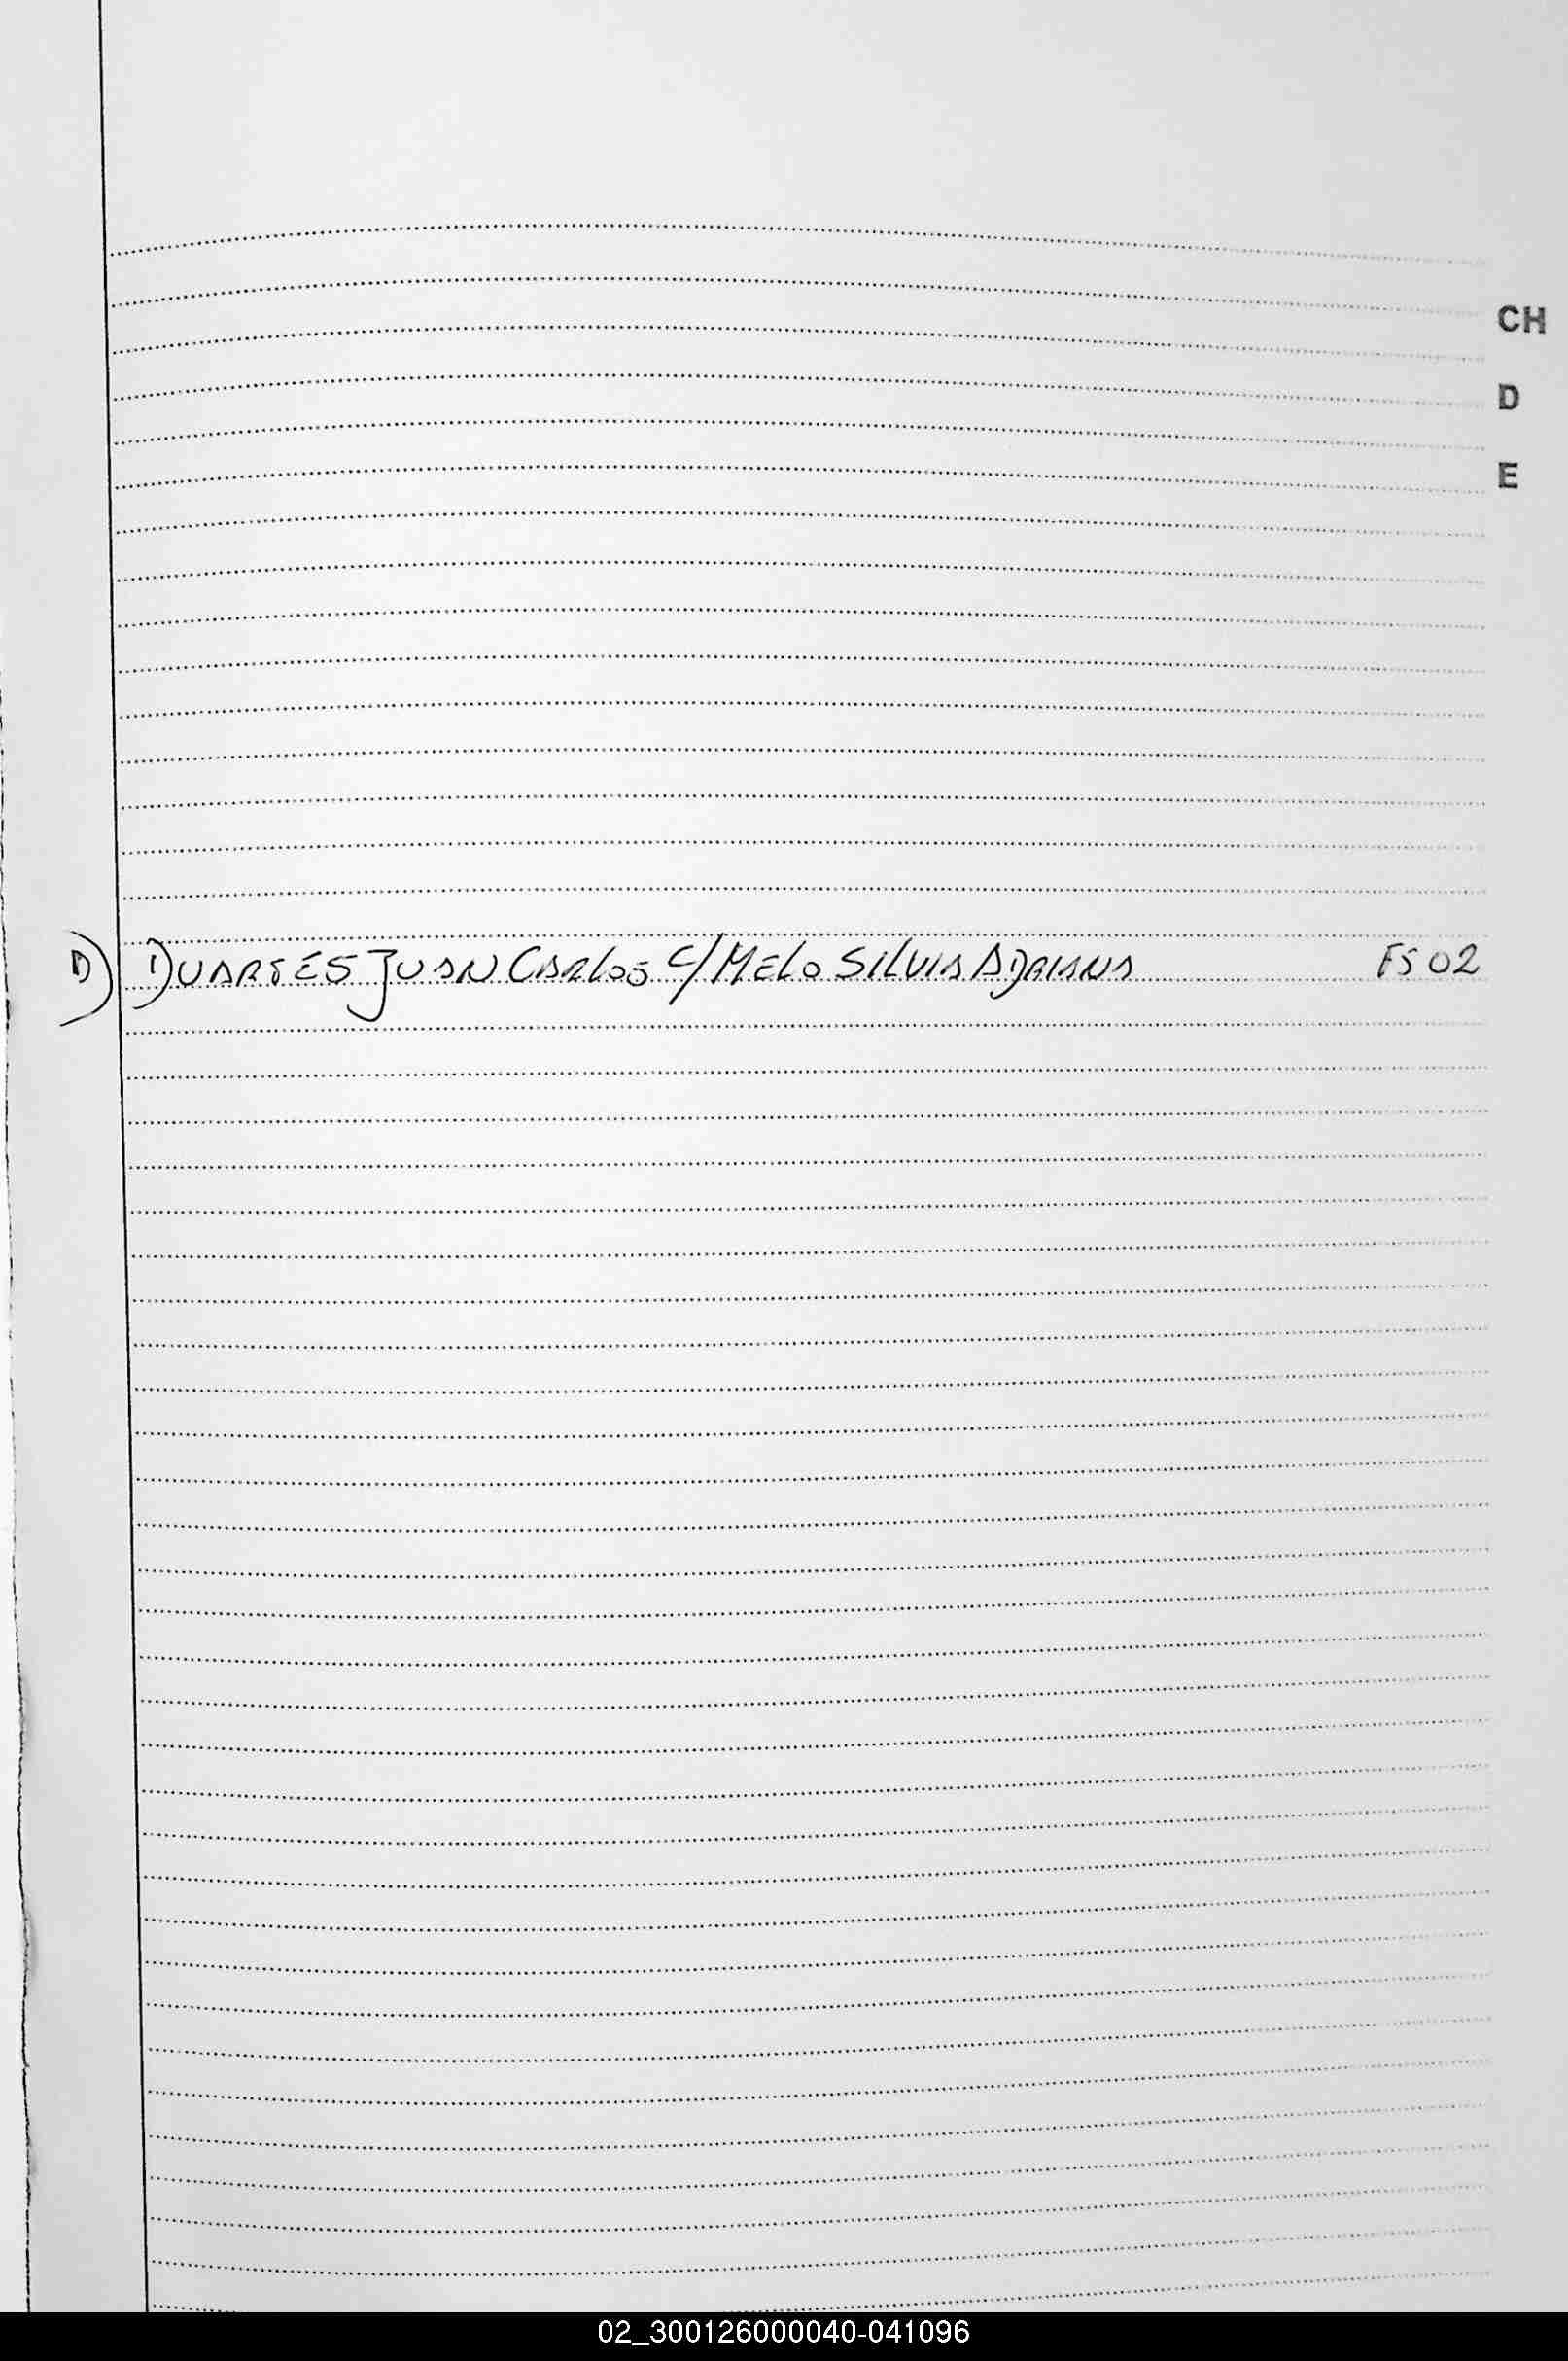 CH
D
E
D) DUARTES JUAN CARLOS C/ MELO SILVIA ADRIANA FS 02
02_300126000040-041096